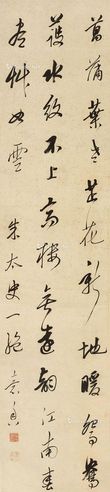 菖蒲葉老芷花新地暖鴛鴦
護水紋不上高樓無遠江南春
盡草如雲朱太史一絕